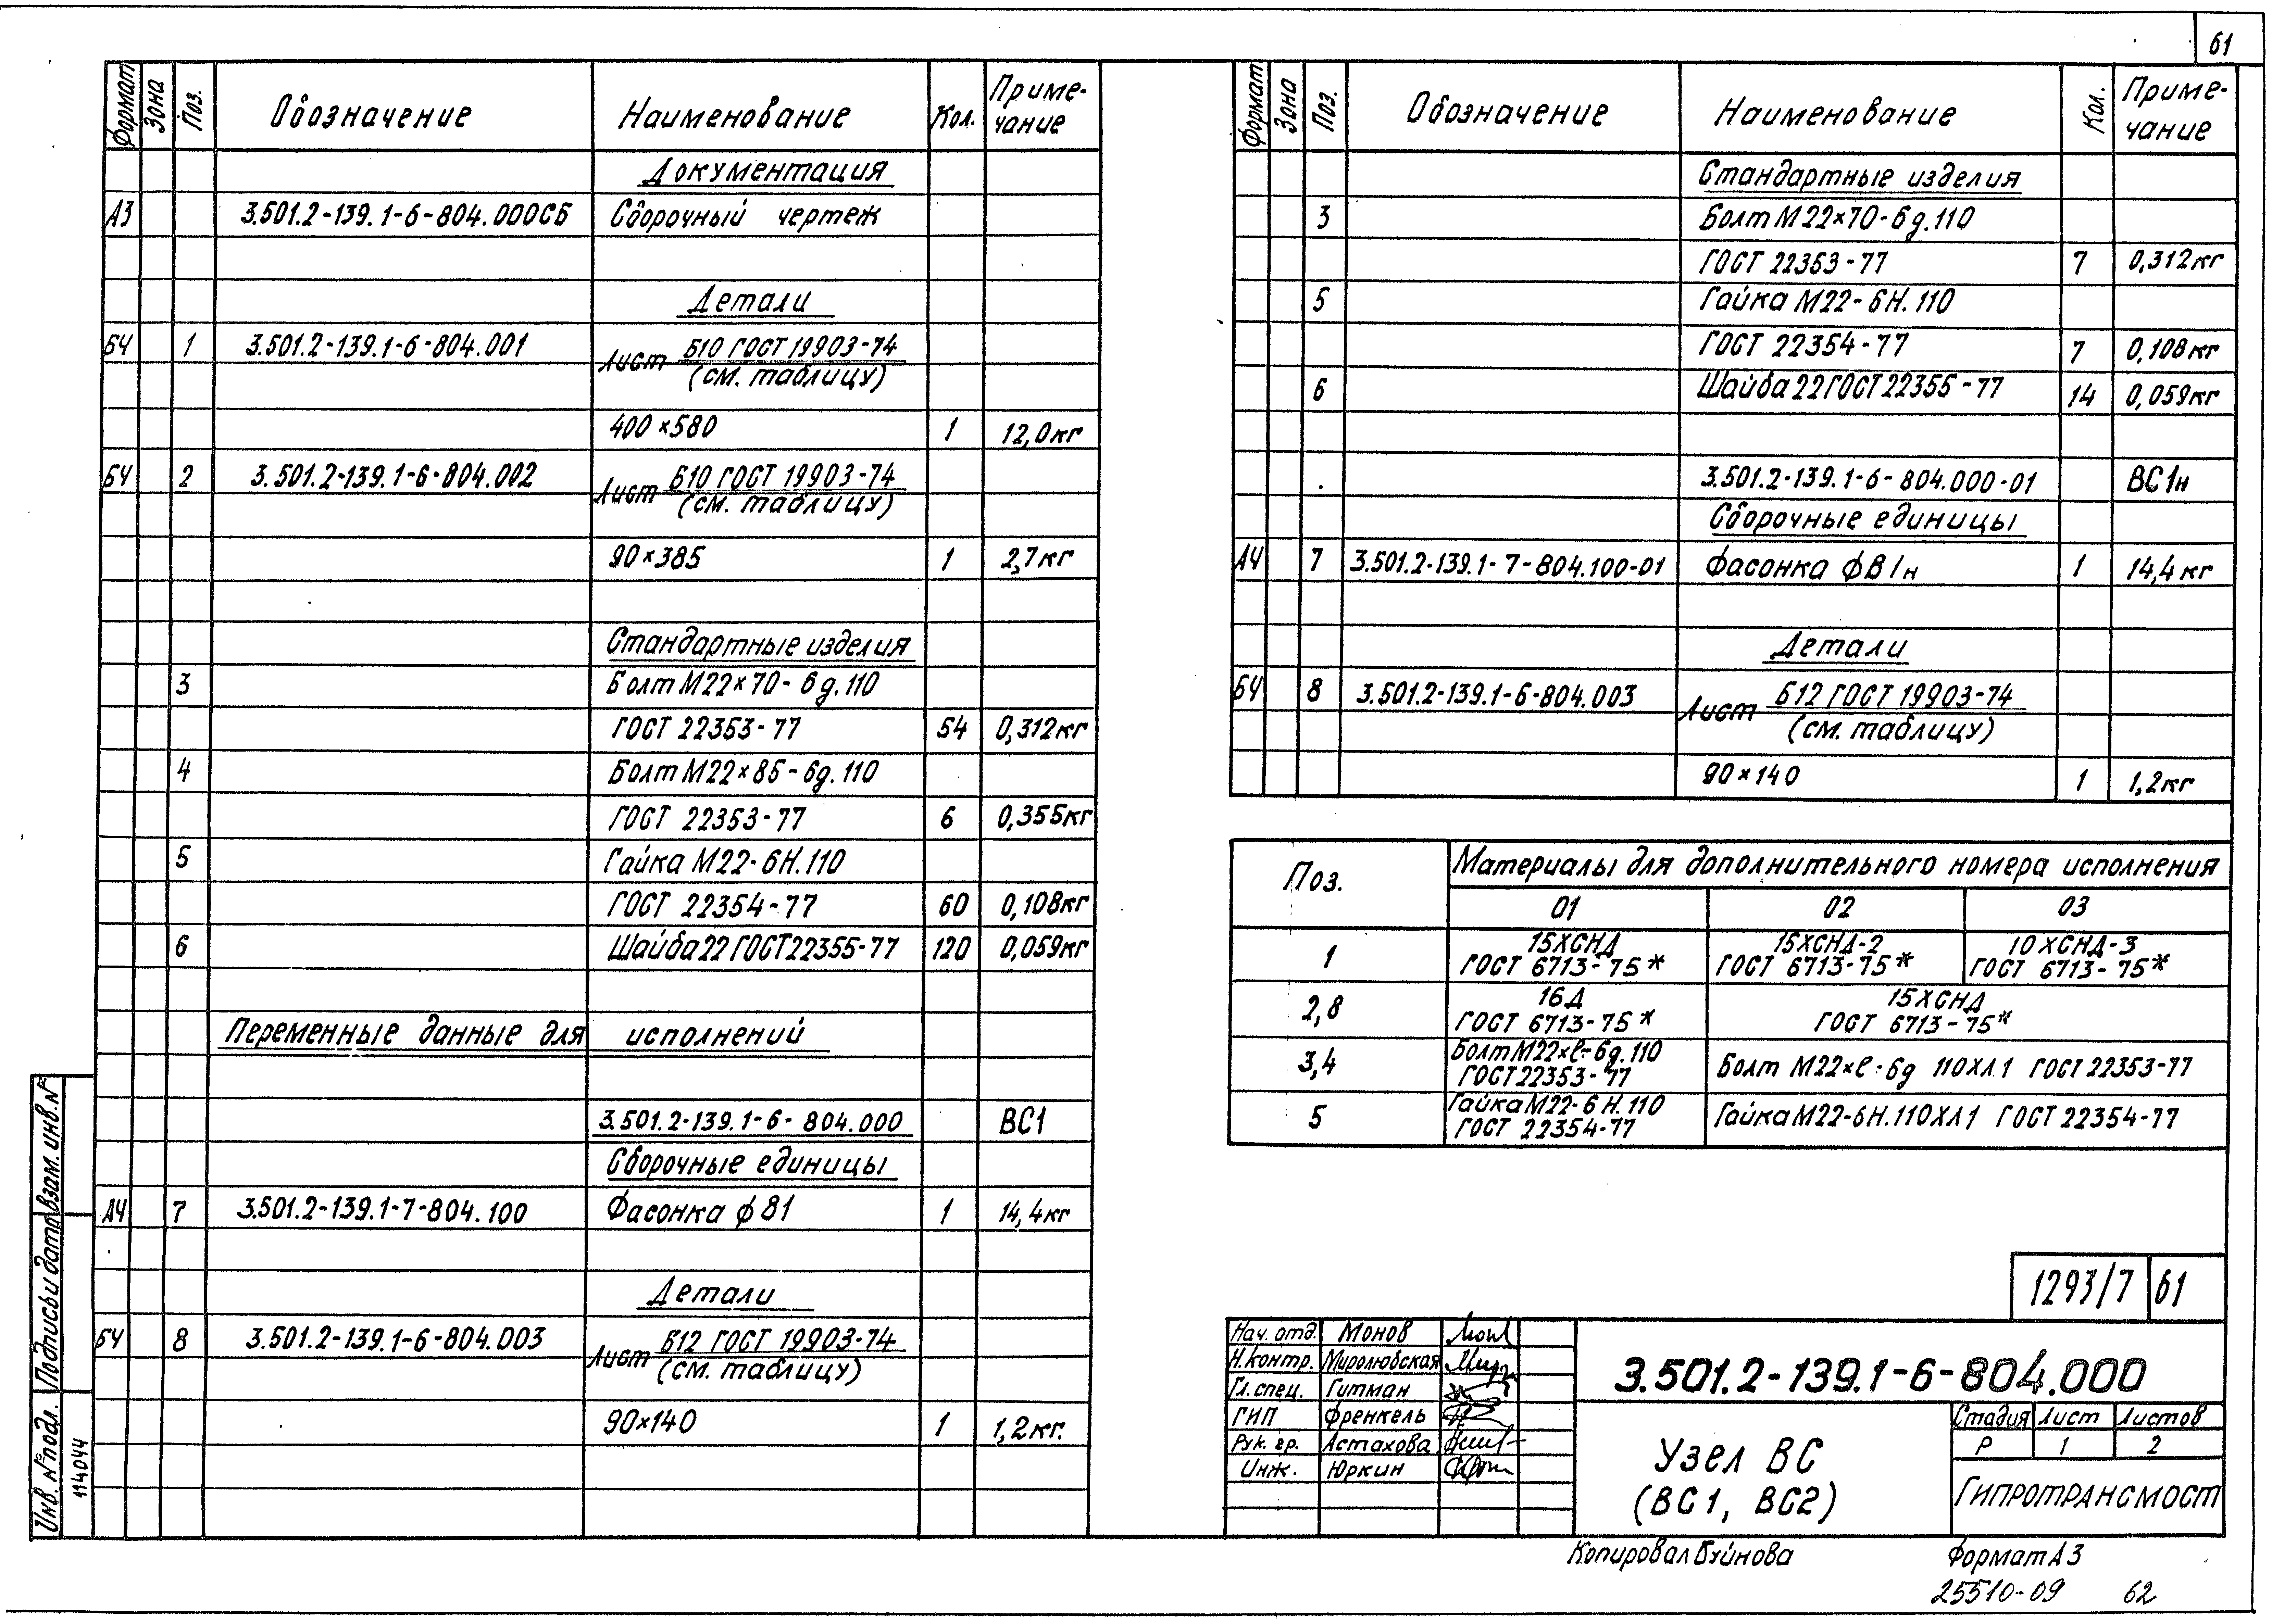 61
Формат Зона Поз. Обозначение Наименование Кол. Приме-
чание
Документация
А3 3.501.2-139.1-6-804.000СБ Сборочный чертеж
Детали
БЧ 1 3.501.2-139.1-6-804.001 Лист Б10 ГОСТ 19903-74
(см. таблицу)
400×580 1 12,0кг
БЧ 2 3.501.2-139.1-6-804.002 Лист Б10 ГОСТ 19903-74
(см. таблицу)
90×385 1 2,7кг
Стандартные изделия
3 Болт М22×70-6g.110
ГОСТ 22353-77 54 0,312кг
4 Болт М22×85-6g.110
ГОСТ 22353-77 6 0,355кг
5 Гайка М22-6Н.110
ГОСТ 22354-77 60 0,108кг
6 Шайба 22 ГОСТ 22355-77 120 0,059кг
Переменные данные для исполнений
3.501.2-139.1-6-804.000 ВС1
Сборочные единицы
А4 7 3.501.2-139.1-7-804.100 Фасонка фВ1 1 14,4кг
Детали
БЧ 8 3.501.2-139.1-6-804.003 Лист Б12 ГОСТ 19903-74
(см. таблицу)
90×140 1 1,2кг.
Формат Зона Поз. Обозначение Наименование Кол. Приме-
чание
Стандартные изделия
3 Болт М22×70-6g.110
ГОСТ 22353-77 7 0,312кг
5 Гайка М22-6Н.110
ГОСТ 22354-77 7 0,108кг
6 Шайба 22 ГОСТ 22355-77 14 0,059кг
3.501.2-139.1-6-804.000-01 ВС1н
Сборочные единицы
А4 7 3.501.2-139.1-7-804.100-01 Фасонка фВ1н 1 14,4кг
Детали
БЧ 8 3.501.2-139.1-6-804.003 Лист Б12 ГОСТ 19903-74
(см. таблицу)
90×140 1 1,2кг
Поз. Материалы для дополнительного номера исполнения
01 02 03
1 15ХСНД 15ХСНД-2 10ХСНД-3
ГОСТ 6713-75* ГОСТ 6713-75* ГОСТ 6713-75*
2,8 16Д 15ХСНД
ГОСТ 6713-75* ГОСТ 6713-75*
3,4 Болт М22×ℓ-6g.110 Болт М22×ℓ-6g 110ХЛ1 ГОСТ 22353-77
ГОСТ 22353-77
5 Гайка М22-6Н.110 Гайка М22-6Н.110ХЛ1 ГОСТ 22354-77
ГОСТ 22354-77
1293/7 61
Нач. отд. Монов
Н.контр. Миролюбская
Гл. спец. Гитман
ГИП Френкель
Рук. гр. Астахова
Инж. Юркин
3.501.2-139.1-6-804.000
Узел ВС
(ВС1, ВС2)
Стадия Лист Листов
Р 1 2
ГИПРОТРАНСМОСТ
Копировал Буйнова Формат А3
25510-09 62
Инв. № подл. Подпись и дата Взам. инв. №
114044